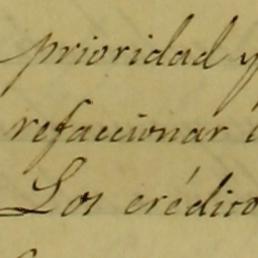 prioridad y
refaccionar
Los crédito